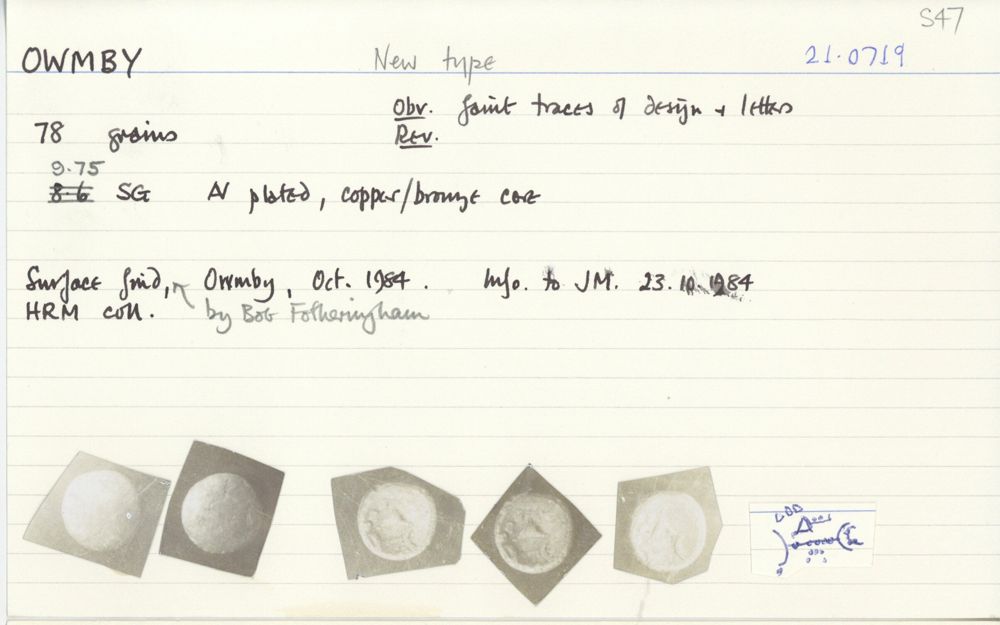 S47
OWMBY New type 21.0719
Obv. faint traces of design + letters
78 grains Rev.
9.75
8.6 SG AV plated, copper/bronze core
Surface find, Owmby, Oct. 1984. Info. to JM. 23.10.1984
HRM coll. by Bob Fotheringham